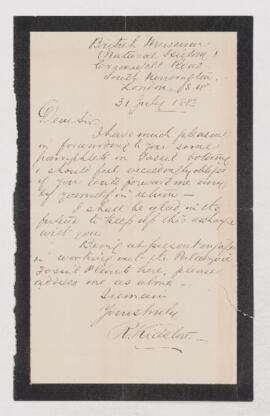 British Museum
(Natural History)
Cromwell Road
South Kensington
London. S.W.
31 July 1883
Dear Sir.
I have much pleasure
in forwarding to you some
pamphlets on Fossil botany
& should feel exceedingly obliged
if you could forward me any
of yourself in return —
I shall be glad in the
future to keep up this exchange
with you
Being at present engaged
in working out the Palaeozoic
Fossil Plants here, please
address me as above —
I remain
Yours truly
R. Kidston —